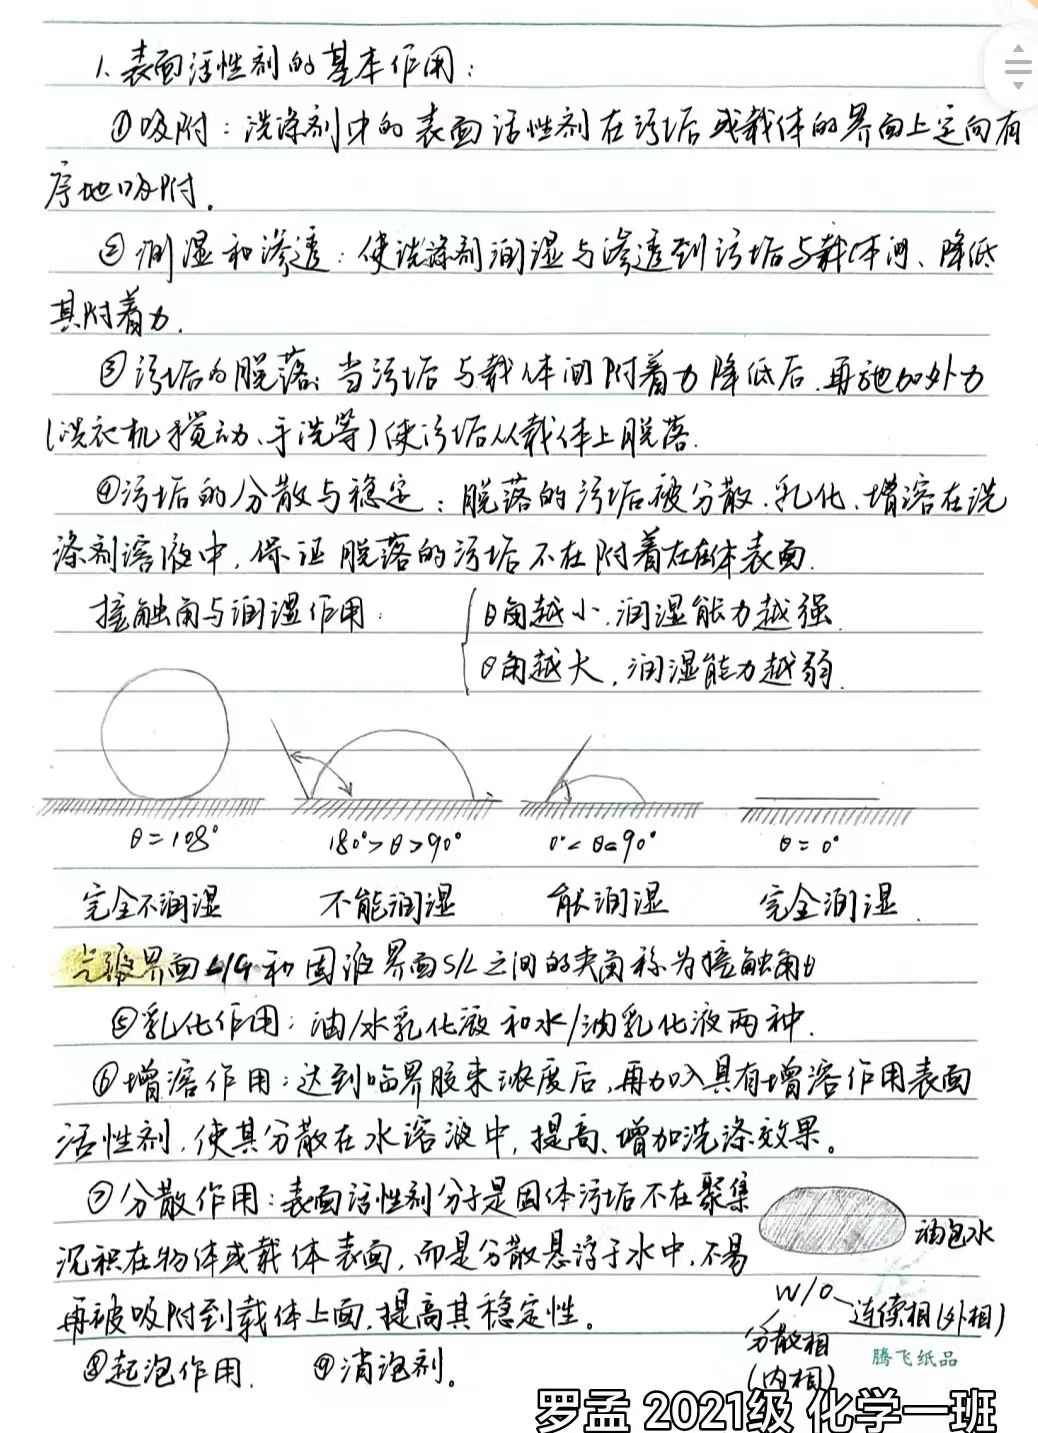 1、表面活性剂的基本作用：
①吸附：洗涤剂中的表面活性剂在污垢或载体的界面上定向有
序地吸附。
②润湿和渗透：使洗涤剂润湿与渗透到污垢与载体间、降低
其附着力.
③污垢的脱落：当污垢与载体间附着力降低后.再施加外力
(洗衣机搅动、手洗等)使污垢从载体上脱落.
④污垢的分散与稳定：脱落的污垢被分散.乳化、增溶在洗
涤剂溶液中,保证脱落的污垢不在附着在体表面.
接触角与润湿作用：
θ角越小.润湿能力越强.
θ角越大.润湿能力越弱.
θ=108° 180°>θ>90° 0°<θ≤90° θ=0°
完全不润湿 不能润湿 能润湿 完全润湿.
气液界面L/G和固液界面S/L之间的夹角称为接触角θ
⑤乳化作用：油/水乳化液和水/油乳化液两种.
⑥增溶作用：达到临界胶束浓度后,再加入具有增溶作用表面
活性剂,使其分散在水溶液中,提高、增加洗涤效果。
⑦分散作用：表面活性剂分子是固体污垢不在聚集
沉积在物体或载体表面,而是分散悬浮于水中.不易
再被吸附到载体上面,提高其稳定性。
⑧起泡作用. ⑨消泡剂。
油包水
W/O
连续相(外相)
分散相
(内相)
腾飞纸品
罗孟 2021级 化学一班